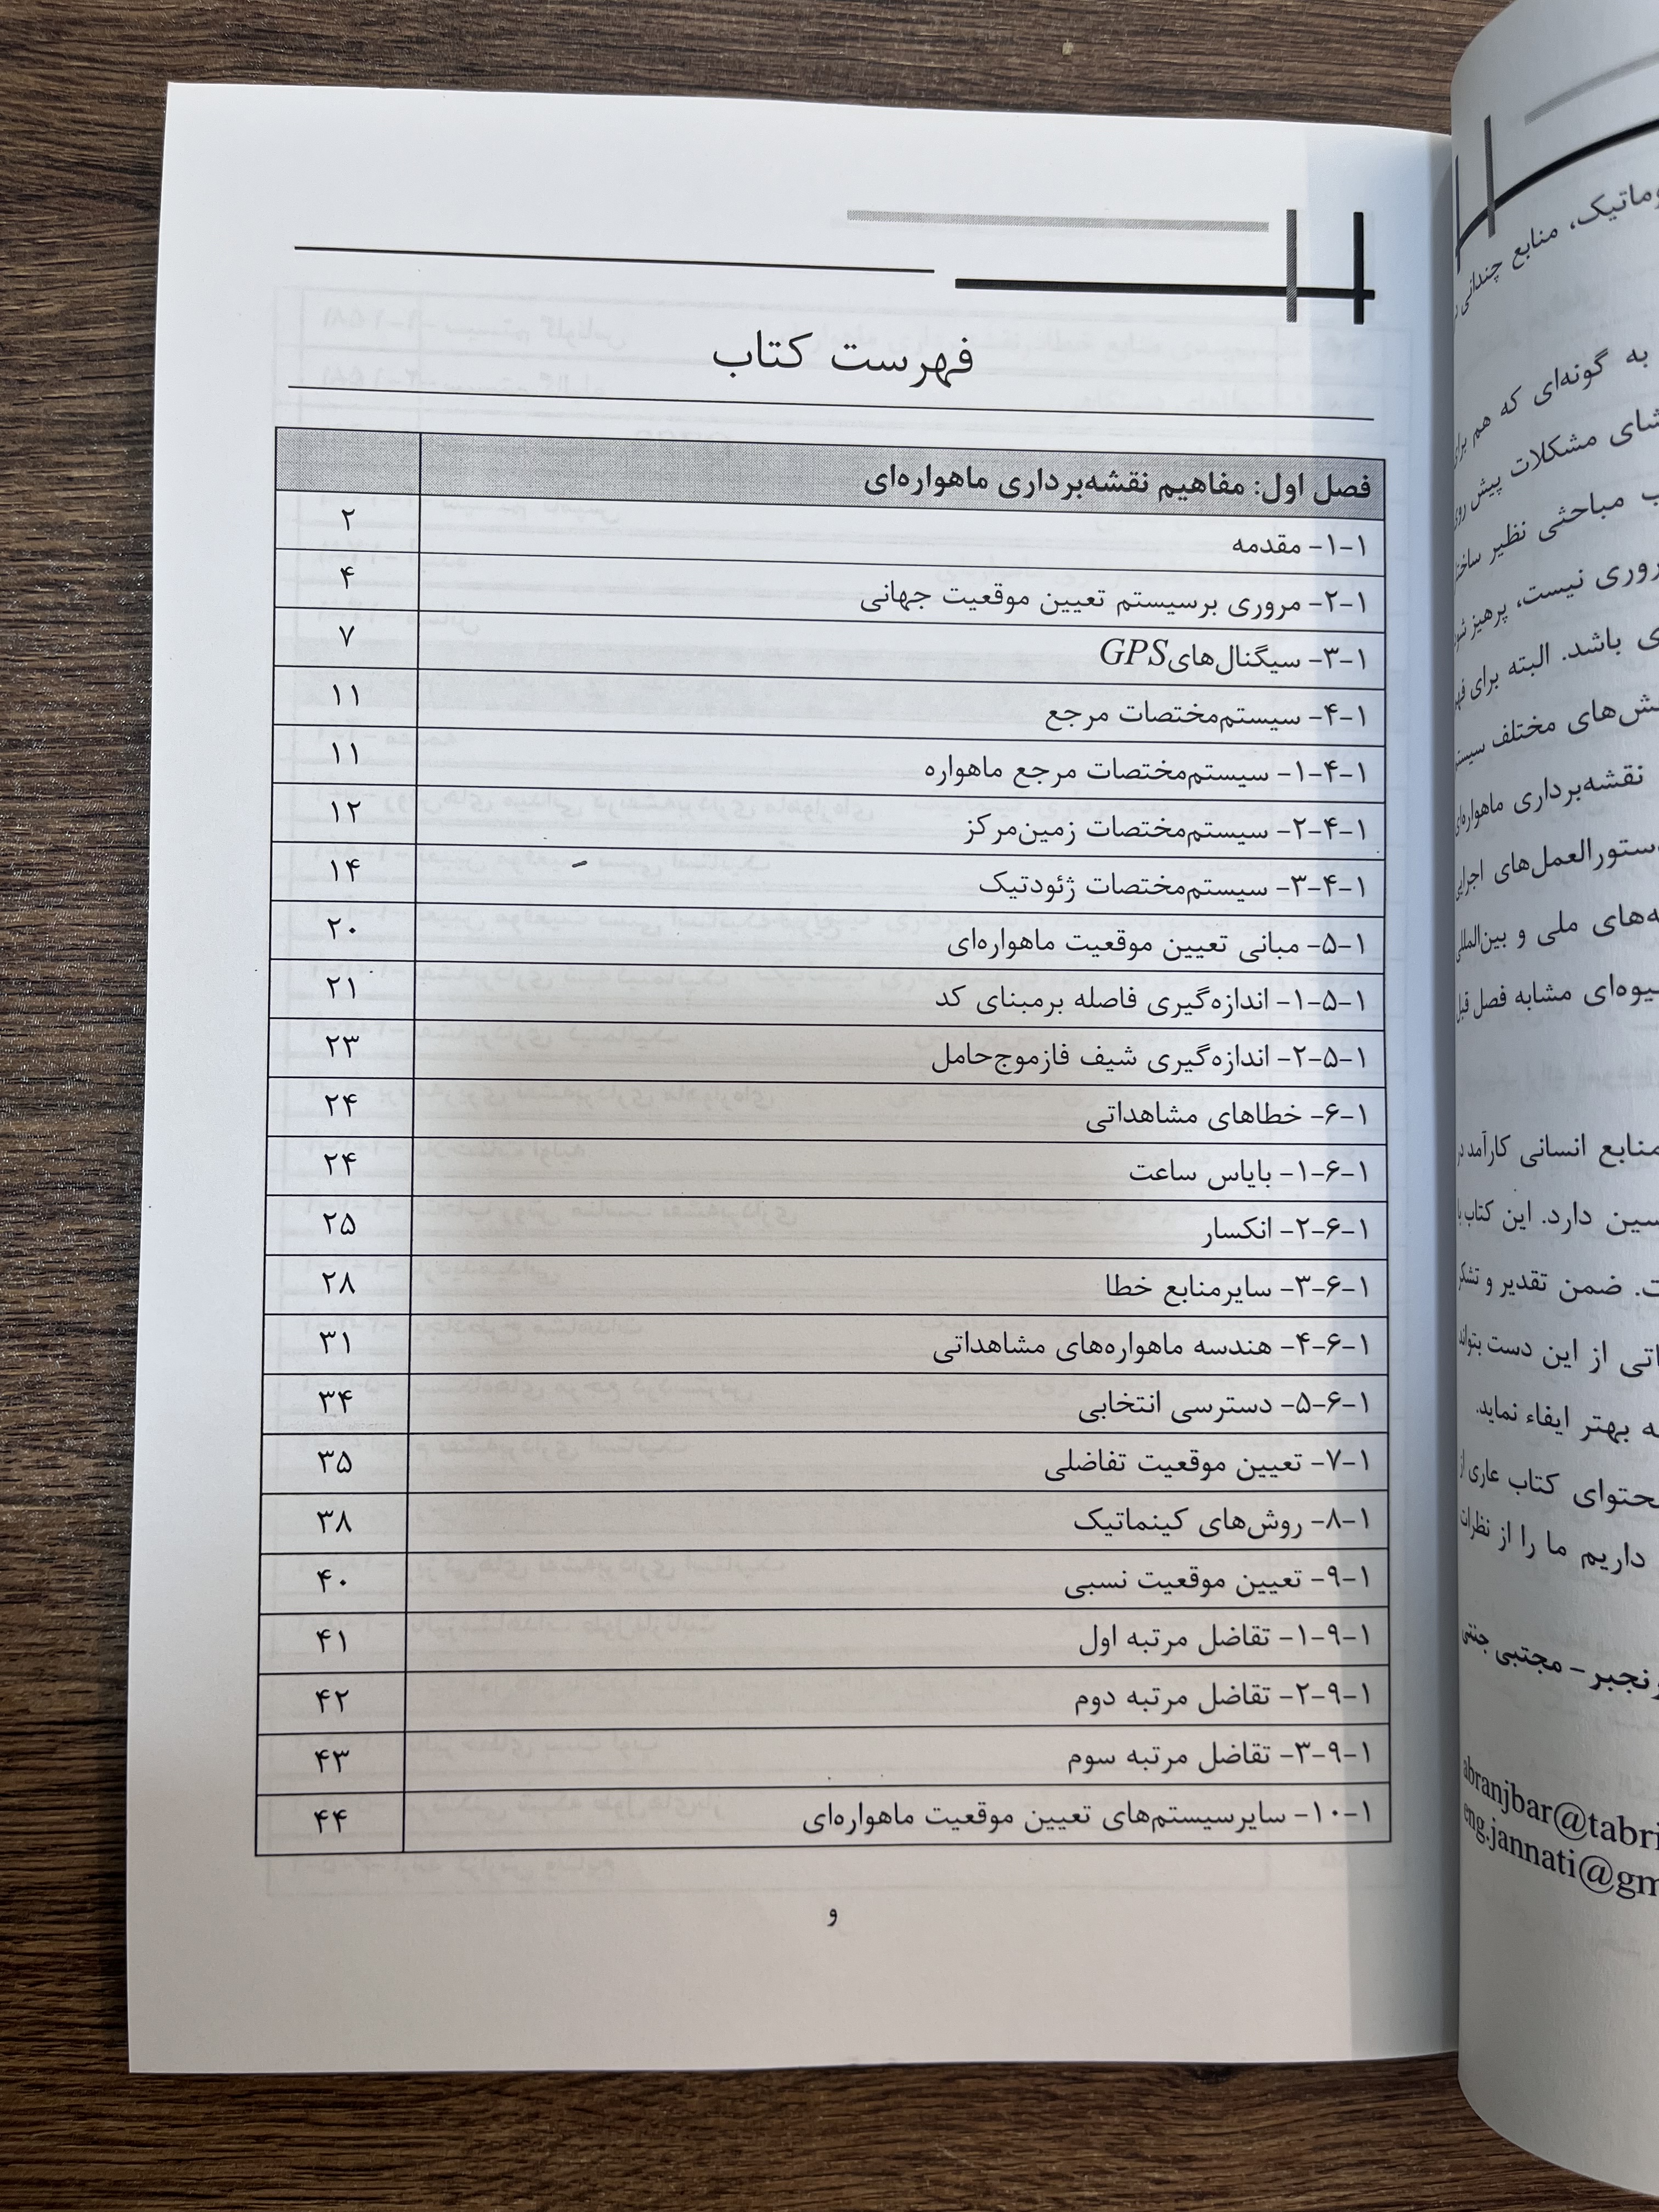 فهرست کتاب
فصل اول: مفاهیم نقشه‌برداری ماهواره‌ای
۱-۱- مقدمه ۲
۱-۲- مروری برسیستم تعیین موقعیت جهانی ۴
۱-۳- سیگنال‌های GPS ۷
۱-۴- سیستم‌مختصات مرجع ۱۱
۱-۴-۱- سیستم‌مختصات مرجع ماهواره ۱۱
۱-۴-۲- سیستم‌مختصات زمین‌مرکز ۱۲
۱-۴-۳- سیستم‌مختصات ژئودتیک ۱۴
۱-۵- مبانی تعیین موقعیت ماهواره‌ای ۲۰
۱-۵-۱- اندازه‌گیری فاصله برمبنای کد ۲۱
۱-۵-۲- اندازه‌گیری شیف فازموج‌حامل ۲۳
۱-۶- خطاهای مشاهداتی ۲۴
۱-۶-۱- بایاس ساعت ۲۴
۱-۶-۲- انکسار ۲۵
۱-۶-۳- سایرمنابع خطا ۲۸
۱-۶-۴- هندسه ماهواره‌های مشاهداتی ۳۱
۱-۶-۵- دسترسی انتخابی ۳۴
۱-۷- تعیین موقعیت تفاضلی ۳۵
۱-۸- روش‌های کینماتیک ۳۸
۱-۹- تعیین موقعیت نسبی ۴۰
۱-۹-۱- تفاضل مرتبه اول ۴۱
۱-۹-۲- تفاضل مرتبه دوم ۴۲
۱-۹-۳- تفاضل مرتبه سوم ۴۳
۱-۱۰- سایرسیستم‌های تعیین موقعیت ماهواره‌ای ۴۴
و
منابع چندانی
به گونه‌ای که هم
مشکلات پیش
مباحثی نظیر
نیست، پرهیز
باشد. البته برای
مختلف
نقشه‌برداری
اجرایی
ملی و
مشابه فصل
منابع انسانی کارآمد
دارد. این کتاب
ضمن تقدیر و
از این دست
بهتر ایفاء نماید.
کتاب عاری
داریم ما را از
- مجتبی